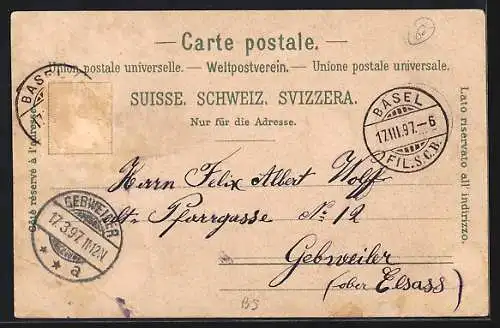 — Carte postale. —
Union postale universelle. — Weltpostverein. — Unione postale universale.
SUISSE. SCHWEIZ. SVIZZERA.
Nur für die Adresse.
Côté réservé à l'adresse.
Lato riservato all' indirizzo.
BASEL
BASEL
17.III.97.–6
FIL.S.C.B.
GEBWEILER
17.3.97.11-12N
* * a
Herrn Felix Albert Wolff
alt. Pfarrgasse No 12
Gebweiler
(ober Elsass)
BS